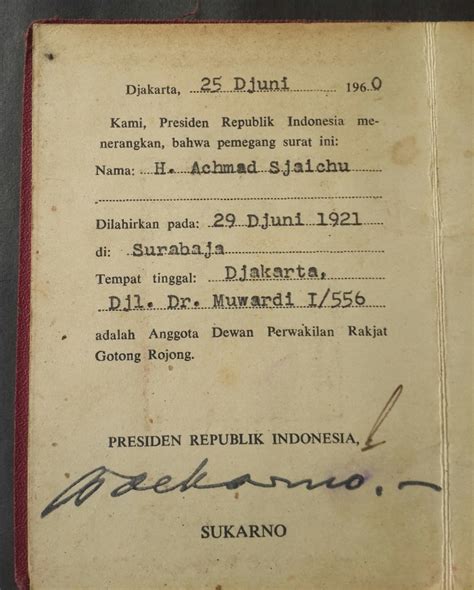 Djakarta, 25 Djuni 1960
Kami, Presiden Republik Indonesia me-
nerangkan, bahwa pemegang surat ini:
Nama: H. Achmad Sjaichu
Dilahirkan pada: 29 Djuni 1921
di: Surabaja
Tempat tinggal: Djakarta,
Djl. Dr. Muwardi I/556
adalah Anggota Dewan Perwakilan Rakjat
Gotong Rojong.
PRESIDEN REPUBLIK INDONESIA,
Soekarno.-
SUKARNO